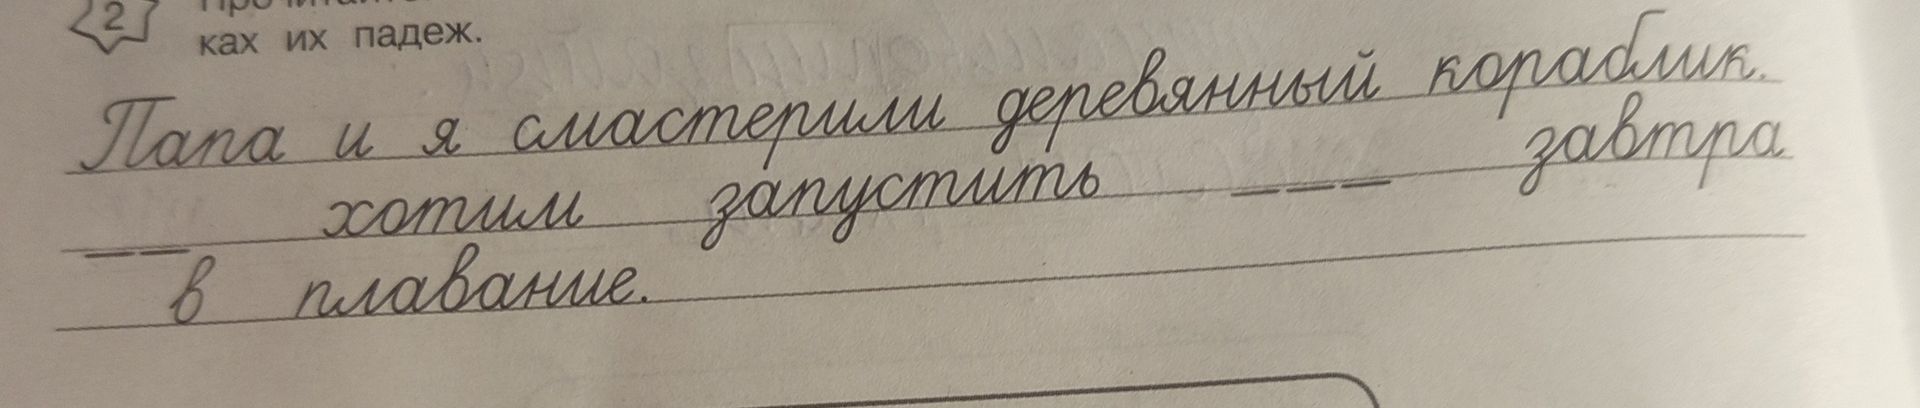 2
ках их падеж.
Папа и я смастерили деревянный кораблик.
__ хотим запустить ___ завтра
в плавание.